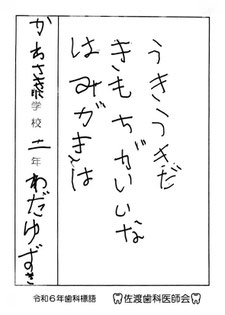 うきうきだ
きもちがいいな
はみがきは
かわさき学校 二年 わだゆずき
令和6年歯科標語
佐渡歯科医師会